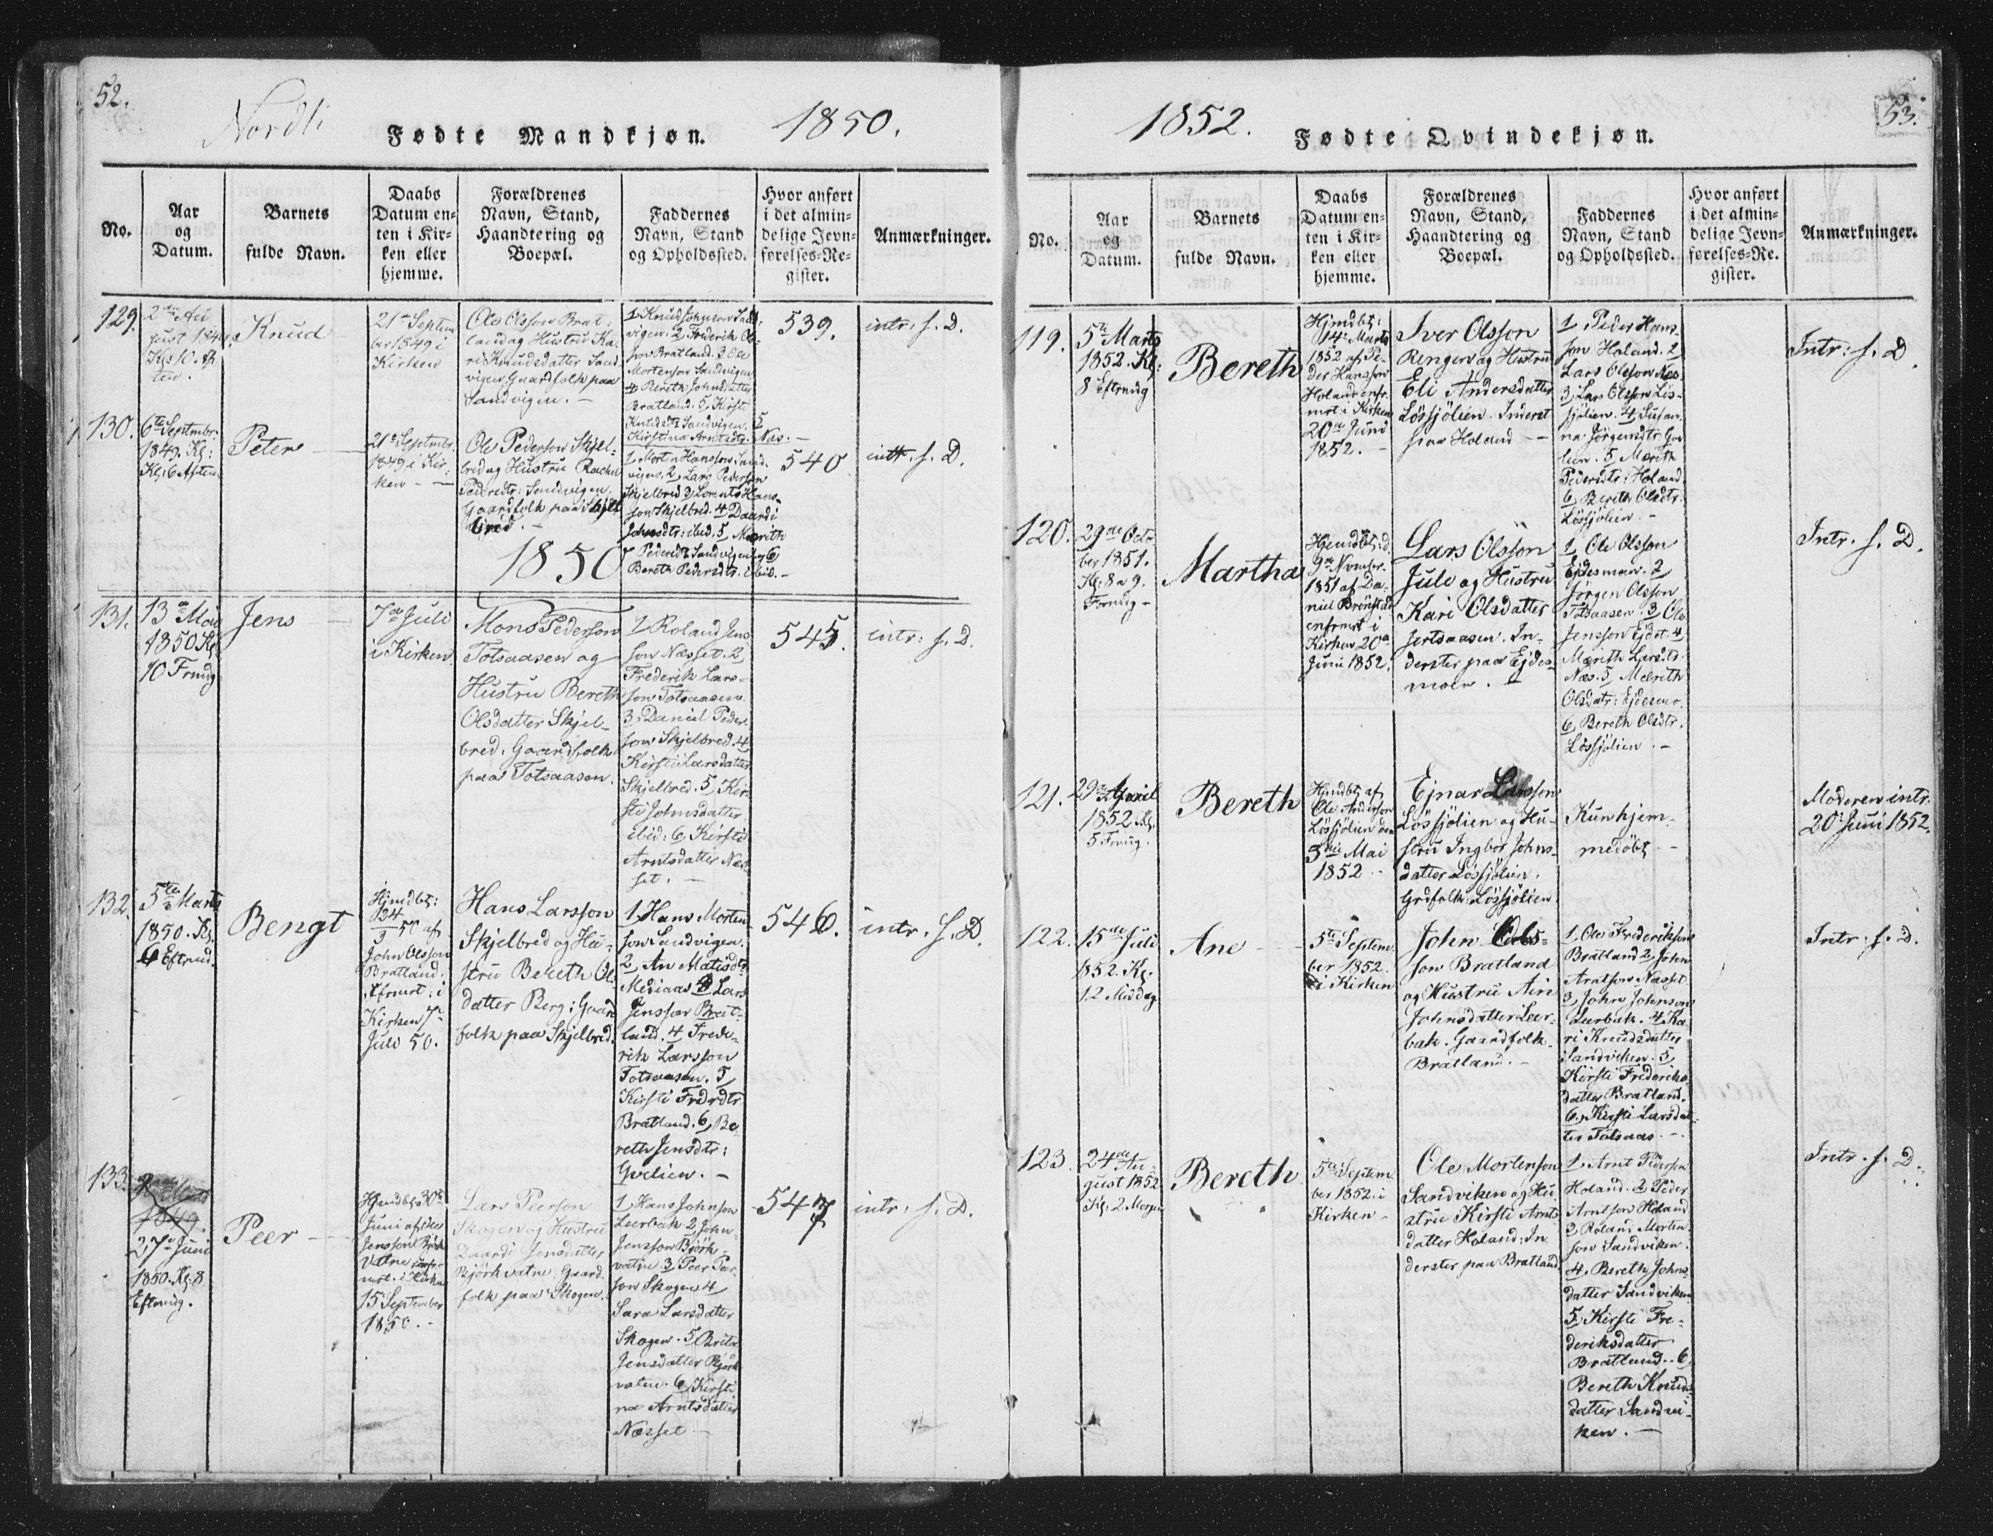 52.
Nordli
Fødte Mandkjøn.
1850.
No.
Aar
og
Datum.
Barnets
fulde Navn.
Daabs
Datum en-
ten i Kir-
ken eller
hjemme.
Forældrenes
Navn, Stand,
Haandtering og
Boepæl.
Faddernes
Navn, Stand
og Opholdssted.
Hvor anført
i det almin-
delige Jevn-
førelses-Re-
gister.
Anmærkninger.
129.
Knud
21de Septem
ber 1849 i
Kirken
Ole Olsson Brat-
land og Hustru Ka-
ri Knudsdatter Sand
vigen, Gaardfolk paa
Sandvigen. —
1, Knud Johnson Sand
vigen. 2, Frederik Ol-
son Bratland. 3, Ole
Mortenson Sandvigen
4, Bereth Johnsdatter
Bratland. 5, Kirsti
539.
intr: f. D.
130.
6te Septmbr.
1849. Kl:
Kl: 6 Aften.
Peter —
21de Septmbr.
1849 i Kir-
ken — —
Ole Pederson Skjel-
bred og Hustru
Pedersdtr: Sandvigen.
Gaardfolk paa Skjel
bred. —
1, Mort. Hansson Sand-
vigen. 2, Lars Pederson
Skjelbred 3, Lorents Hans-
son Skjelbred. 4, Daardi
Johnsdtr: ibid. 5, Mærith
Pedersdtr Sandvigen og 6
Bereth Pedersdtr. ibid. —
540
intr. f. D.
1850
131.
13de Mai
1850 Kl.
10 Frmg
Jens —
7de Juli
i Kirken
Mons Pederson
Totsaasen og
Hustru Bereth
Olsdatter Skjel-
bred. Gaardfolk
paa Totsaasen.
1, Roland Jens
son Næsset. 2,
Frederik Lars-
son Totsaasen.
3, Daniel Peder
son Skjelbred. 4,
Kirsti Larsdatter
Skjelbred. 5, Kir-
sti Johnsdatter
ibid: 6, Kirsti
Arntsdatter Næs-
set. —
545.
intr: f. D.
132.
5te Marts
1850. Kl.
6 Eftrmd.
Bengt
Hjmdbt:
24
3 50 af
John Olsson
Bratland.
Kfrmrt: i
Kirken 7de
Juli 50.
Hans Larsson
Skjelbred og Hu-
stru Bereth Ol-
datter Berg: Gaard
folk paa Skjelbred.
1, Hans Morten
son Sandvigen.
2, An Matisdtr
Mediaas 3, Lars
Jensson Brat-
land. 4, Frede-
rik Larsson
Totsaasen. 5,
Kirsti Fredrdtr
Bratland. 6, Be-
reth Jensdtr:
Gvelien. —
546.
intr. f. D.
133.
27de Juni
1850. Kl. 8
Eftrmdg.
Peer —
Hjmdbt 30de
Juni af Peer
Jensson Björk
vatne
mrt. i Kirken
15 September
1850. —
Lars Peerson
Skogen og Hustru
Daardi Jensdatter
Björkvatne. Gaard
folk paa Skogen.
1, Hans Johnson
Leerbak 2, John
Jensson Björk-
vatne. 3, Peer Lar-
son Skogen 4,
Sara Larsdatter
Skogen. 5, Brita
Jensdatter Bjørk
vatne. 6, Kirsti-
na Arntsdatter
Næsset —
547
intr: f. D.
1852.
Fødte Qvindekjøn.
53.
No.
Aar
og
Datum.
Barnets
fulde Navn.
Daabs
Datum en-
ten i Kir-
ken eller
hjemme.
Forældrenes
Navn, Stand,
Haandtering og
Boepæl.
Faddernes
Navn, Stand
og Opholdssted.
Hvor anført
i det almin-
delige Jevn-
førelses-Re-
gister.
Anmærkninger.
119.
5te Marts
1852. Kl:
8 Eftrmdg
Bereth
Hjmdbt:
14de Marts
1852 af Pe-
der Hansson
Holand
mrt i Kirken
20de Juni
1852. —
Iver Olsson
Rengen og Hustru
Eli Andersdatter
Lössjölien. Inderst
paa Holand —
1, Peder Hans-
son Holand. 2,
Lars Olsson Næs-
3, Lars Olsson Lös-
sjölien. 4, Susan-
na Jörgensdtr Gve
lien. 5, Mærith
Pedersdtr: Holand.
6, Bereth Olsdtr:
Lössjölien. —
Intr: f. D.
120.
29de Octo
ber 1851.
Kl: 8 a 9.
Formg —
Martha
Hjemdbt: d.
9de Nvmbr.
1851 af Da-
niel Brönstad
enfrmrt i
Kirken 20de
Juni 1852.
Lars Olsson
Jule og Hustru
Kari Olsdatter
Jertsaasen. In-
derster paa Ejdes-
moen. —
1, Ole Olsson
Ejdesmoen. 2,
Jørgen Olsson
Totsaasen. 3, Ole
Jensson Ejdet. 4,
Mærith Larsdtr
Næs. 5, Mærith
Olsdatr: Ejdesmo.
6, Bereth Olsdtr.
Lössjölien. —
Intr. f. D.
121.
29de April
1852 Kl.
5 Frmg.
Bereth
Hjmdbt af
Ole Anderson
Lössjölien den
3die Mai
1852 —
Ejnar Larsson
Lössjölien og Hu-
stru Ingbor Johns-
datter Lössjölien.
Grdfolk: Lössjölien.
Kun hjem-
medöbt —
Moderen intr.
20de Juni 1852.
122.
15de Juli
1852. Kl.
12 Middag
Ane —
5te Septem
ber 1852.
i Kirken
John Ols-
son Bratland
og Hustru Ane
Johnsdatter Leer-
bak. Gaardfolk.
Bratland. —
1, Ole Frederikson
Bratland 2, John
Arntson Næsset
3, John Johnson
Leerbak. 4, Ka-
ri Knudsdatter
Sandviken. 5,
Kirsti Frederiks
datter Bratland.
6, Kirsti Larsdat
ter Totsaas. —
Intr: f. D.
123.
24de Au-
gust 1852
Kl. 2 Morgen
Bereth
5te Septem
ber 1852. i
Kirken —
Ole Mortenson
Sandviken og Hu
stru Kirsti Arnts
datter Holand: In
derster paa Bratland
1, Arnt Pederson
Holand. 2, Peder
Arntson Holand
3, Roland Morten
son Sandviken.
4, Bereth Johns-
datter Sandviken
5, Kirsti Fre-
deriksdatter
Bratland. 6,
Bereth Knuds-
datter Sandvi-
ken. —
Intr. f. D.